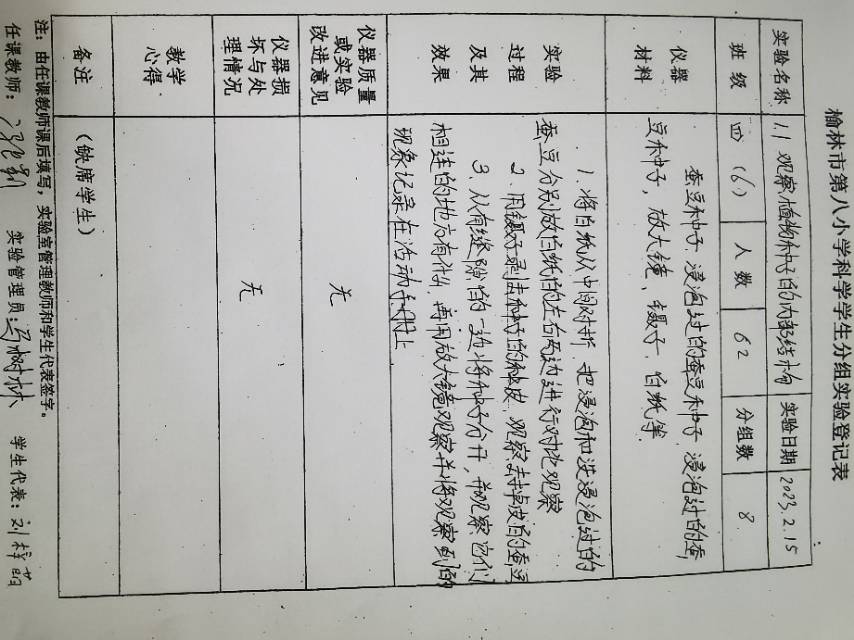 榆林市第八小学科学学生分组实验登记表
实验名称 1.1 观察植物种子的内部结构 实验日期 2023.2.15
班级 四(6) 人数 62 分组数 8
仪器材料 蚕豆种子、浸泡过的蚕豆种子、浸泡过的蚕
豆种子，放大镜、镊子、白纸等
实验过程及其效果 1. 将白纸从中间对折，把浸泡和没浸泡过的
蚕豆分别放白纸的左右两边进行对比观察
2. 用镊子剥去种子的种皮，观察去掉皮的蚕豆
3. 从有缝隙的一边将种子分开，并观察它们
相连的地方有什么，再用放大镜观察并将观察到的
现象记录在活动手册上
仪器质量或实验改进意见 无
仪器损坏与处理情况 无
教学心得
备注 （缺席学生）
注：由任课教师课后填写，实验室管理教师和学生代表签字。
任课教师： 实验管理员：马树林 学生代表：刘梓苗